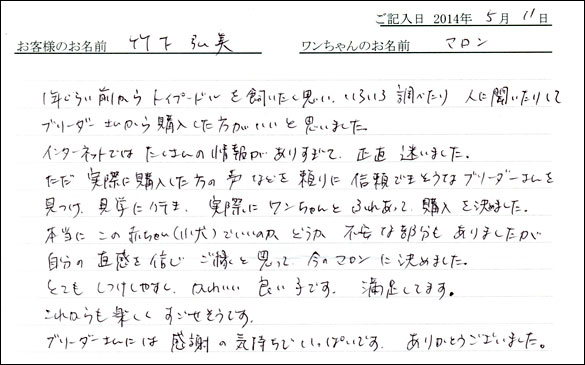 ご記入日 2014年 5月 11日
お客様のお名前 竹下 弘美 ワンちゃんのお名前 マロン
1年ぐらい前から トイプードル を飼いたく思い、いろいろ 調べたり 人に聞いたりして
ブリーダー さんから購入した方がいいと思いました。
インターネットでは たくさんの情報が ありすぎて、正直 迷いました。
ただ 実際に購入した方の声 などを頼りに 信頼できそうなブリーダーさんを
見つけ、見学に行き、実際に ワンちゃんと ふれあって 購入を決めました。
本当に この赤ちゃん(小犬)でいいのか どうか 不安な部分も ありましたが
自分の 直感を信じ ご縁と思って 今のマロン に決めました。
とても しつけしやすく、かわいい 良い子です。 満足してます。
これからも楽しく すごせそうです。
ブリーダーさんには 感謝の気持ちで いっぱいです。 ありがとうございました。